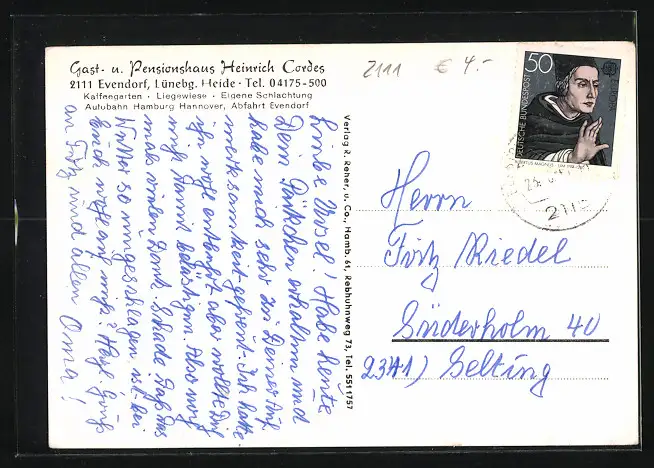 Gast- u. Pensionshaus Heinrich Cordes
2111 Evendorf, Lünebg. Heide · Tel. 04175-500
Kaffeegarten · Liegewiese · Eigene Schlachtung
Autobahn Hamburg Hannover, Abfahrt Evendorf
2111 € 4.-
50
DEUTSCHE BUNDESPOST
ALBERTUS MAGNUS
2115
Liebe Ursel! Habe heute
Dein Päckchen erhalten und
habe mich sehr zu Deiner Auf
merksamkeit gefreut. Ich hatte
ihn wohl entbehrt aber wollte Dich
nicht damit belästigen. Also noch
mals vielen Dank. Schade daß das
Wetter so umgeschlagen ist. bei
Euch wohl auch? Herzl. Grüße
an Fritz und allen Oma!
Verlag R. Reher, u. Co., Hamb. 61, Rebhuhnweg 73, Tel. 5511757
Herrn
Fritz Riedel
Süderholm 40
2341) Gelting